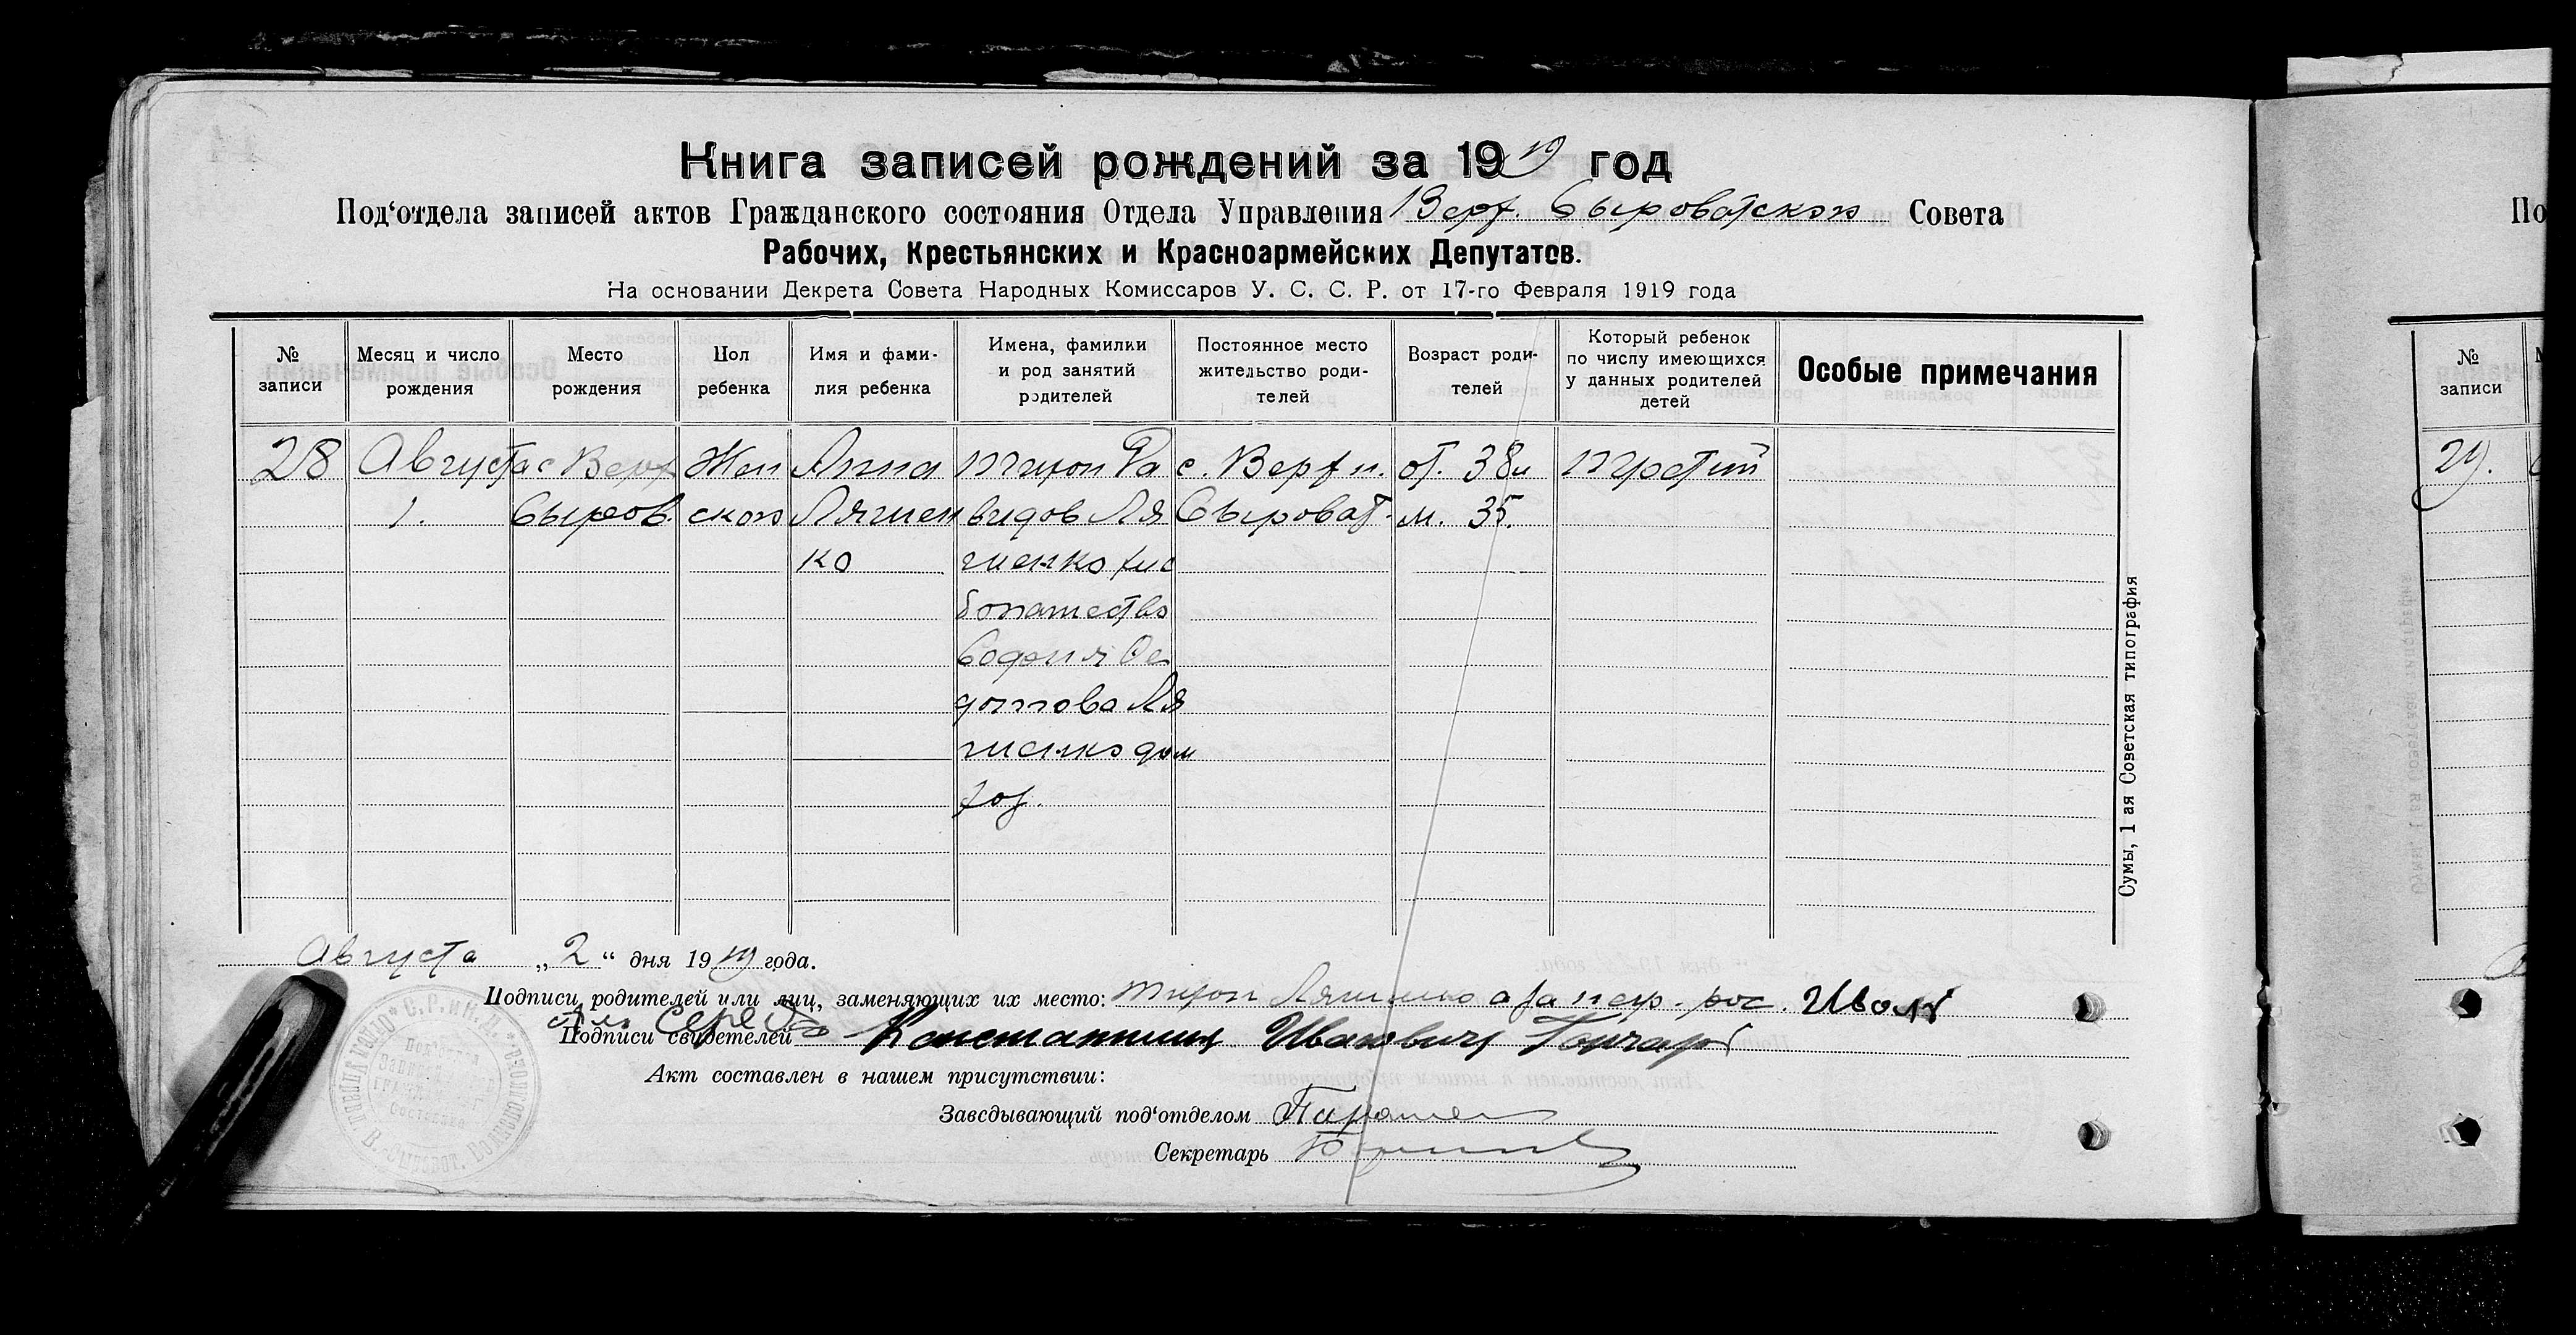 Книга записей рождений за 1919 год
Под‘отдела записей актов Гражданского состояния Отдела Управления Верх. Сыроватского Совета
Рабочих, Крестьянских и Красноармейских Депутатов.
На основании Декрета Совета Народных Комиссаров У. С. С. Р. от 17-го Февраля 1919 года
№ записи
Месяц и число рождения
Место рождения
Пол ребенка
Имя и фами-
лия ребенка
Имена, фамилии
и род занятий
родителей
Постоянное место
жительство роди-
телей
Возраст роди-
телей
Который ребенок
по числу имеющихся
у данных родителей
детей
Особые примечания
28
Августа
1.
с Верх
Сыров.
Жен
ского
Анна
Ляшен
ко
Тихон Да
видов Ля
шенко хле
бопашество
София Фе
дотова Ля
шенко дом
хоз.
с. Верхн.
Сыроват.
от. 38л
м. 35.
Третий
Сумы, 1 ая Советская типография
Августа „2“ дня 1919 года.
Подписи родителей или лиц, заменяющих их место: Тихон Ляшенко а за негр. рос. Иван
Середа
Подписи свидетелей Константин Иванович Гончар
Акт составлен в нашем присутствии:
Заведывающий под‘отделом
Секретарь
№ записи
29.
По